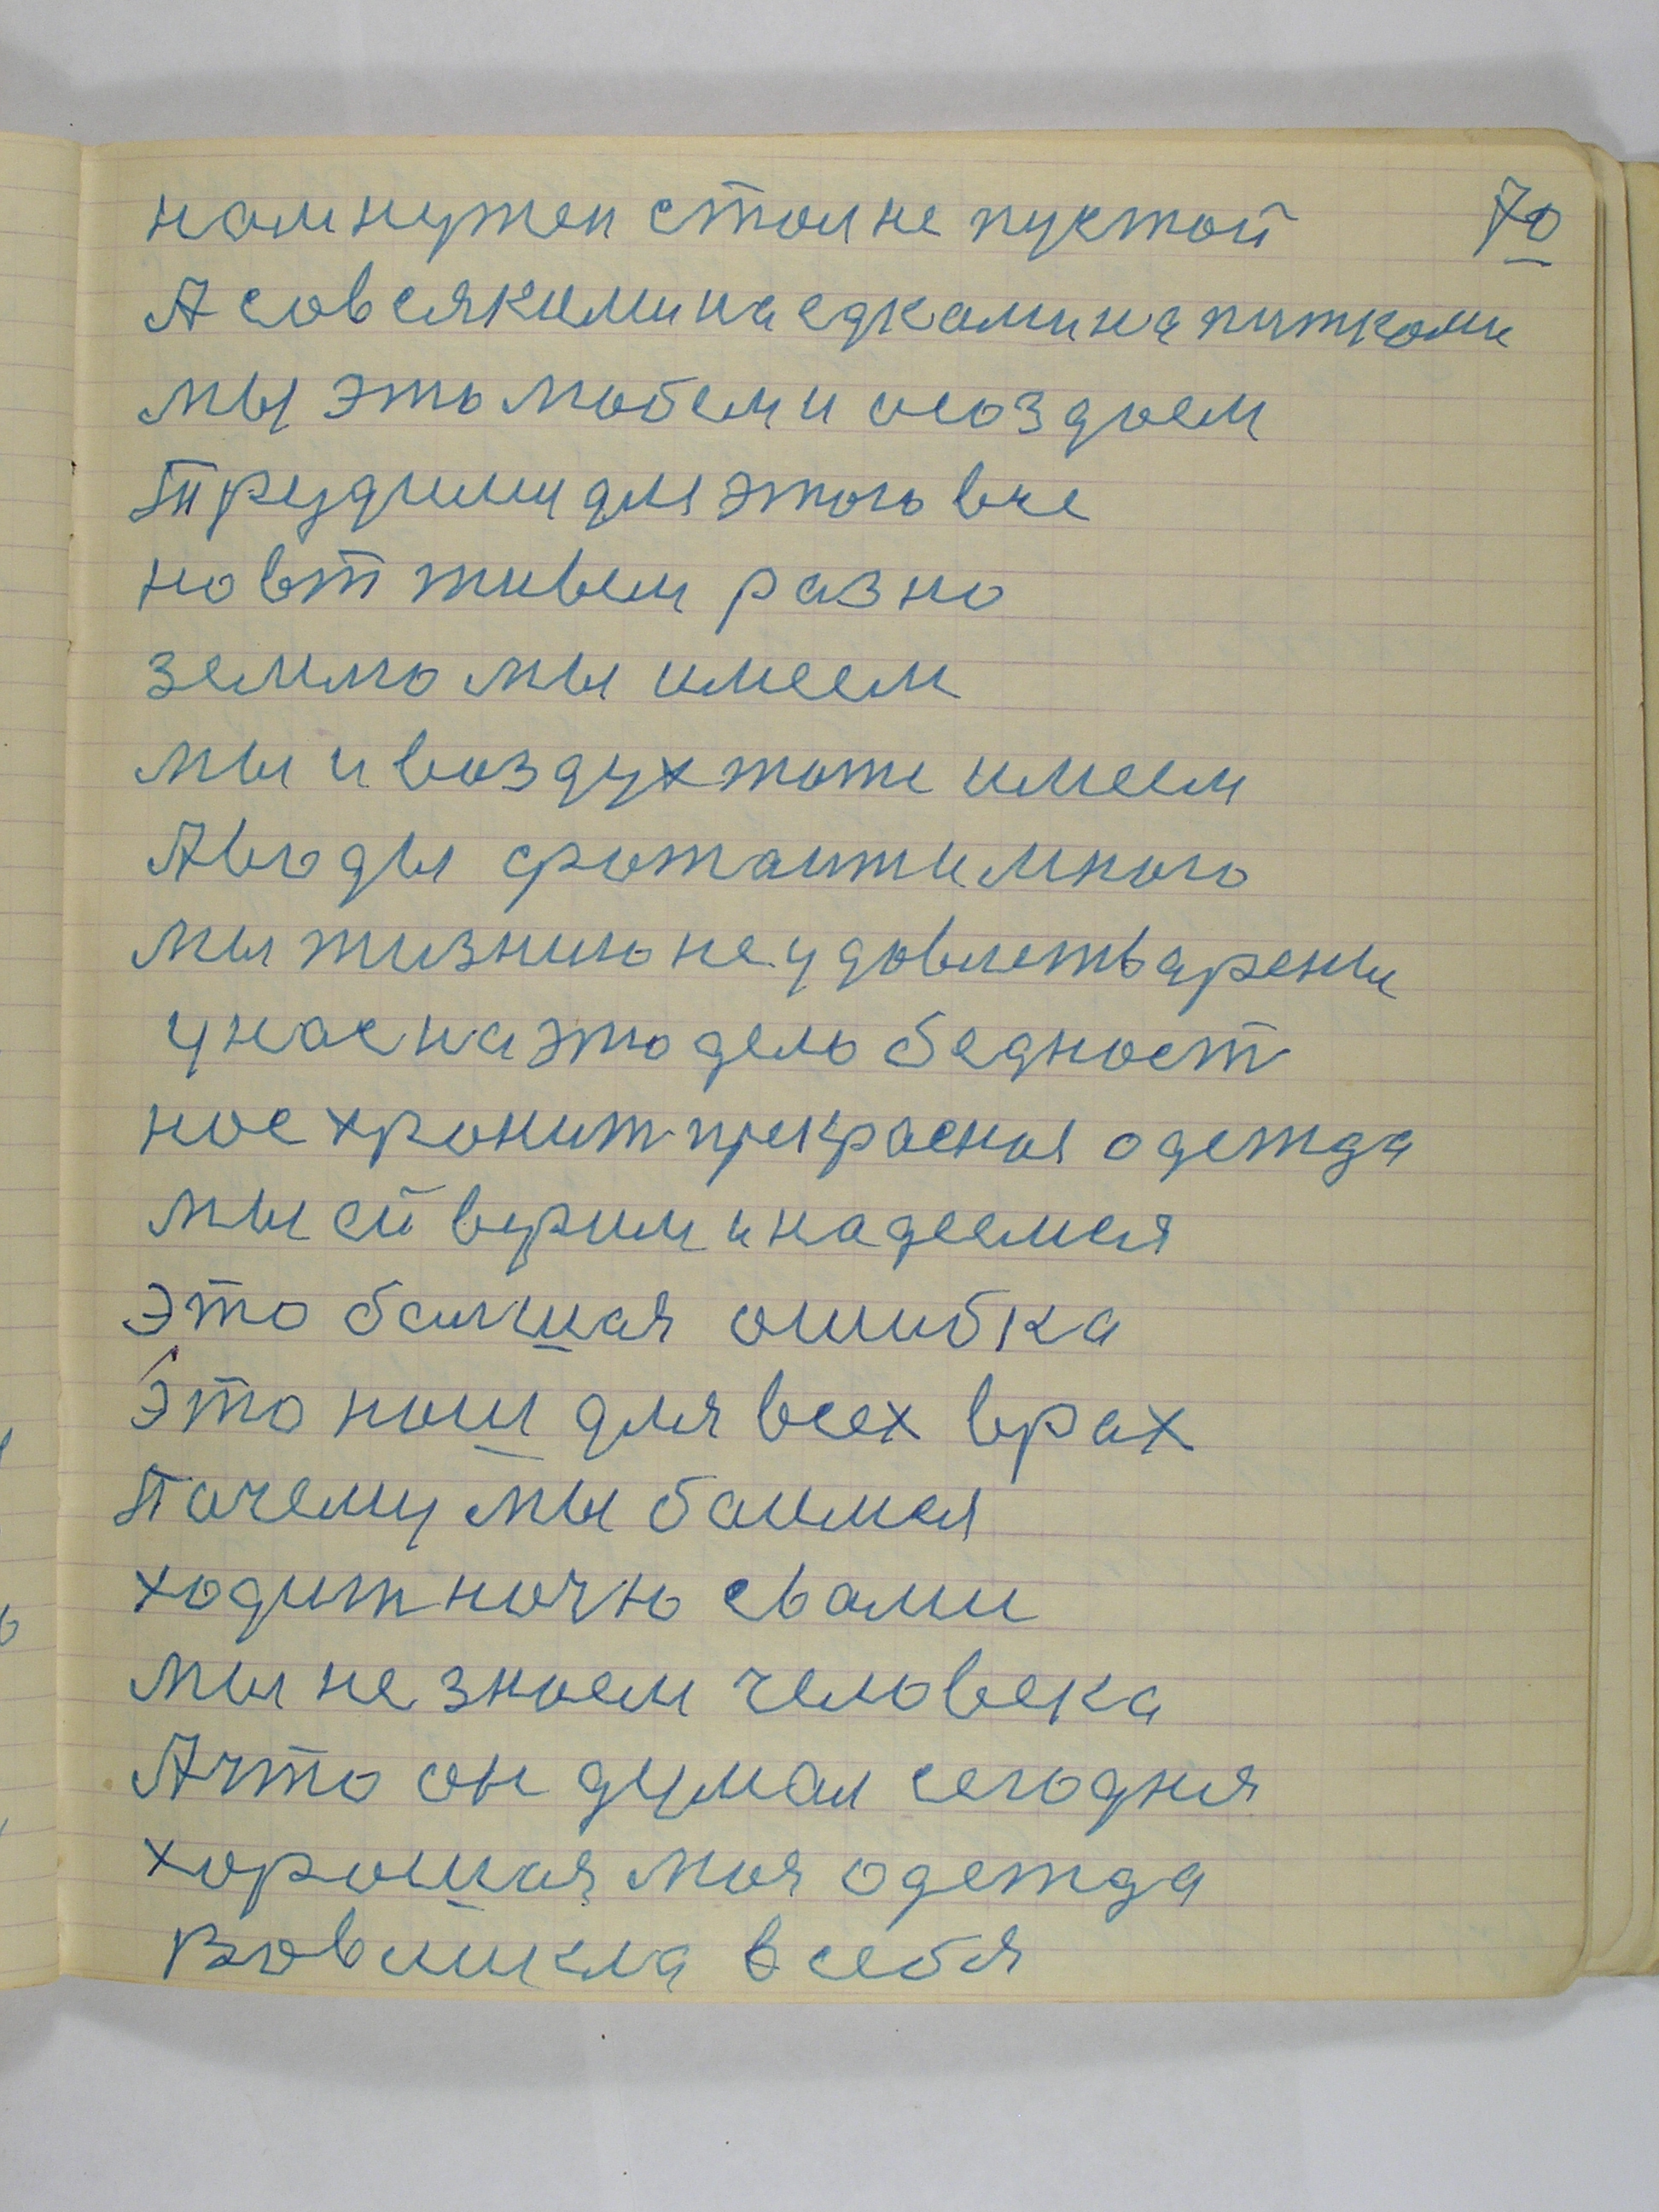 70
нам нужен стол не пустой
А со всякими наедками напитками
мы это любем и создаем
Трудимы для этого все
но вот живем разно
землю мы имеем
мы и воздух тоже имеем
А воды хватаит и много
мы жизнию не удовлетварены
у нас на это дело бедност
нас хронит прекрасная одежда
мы ей верим и надеемся
Это балшая ошибка
Это наш для всех врах
Почему мы боимся
ходит ночю с вами
мы не знаем человека
А что он думал сегодня
хорошая моя одежда
Вовликла в себя